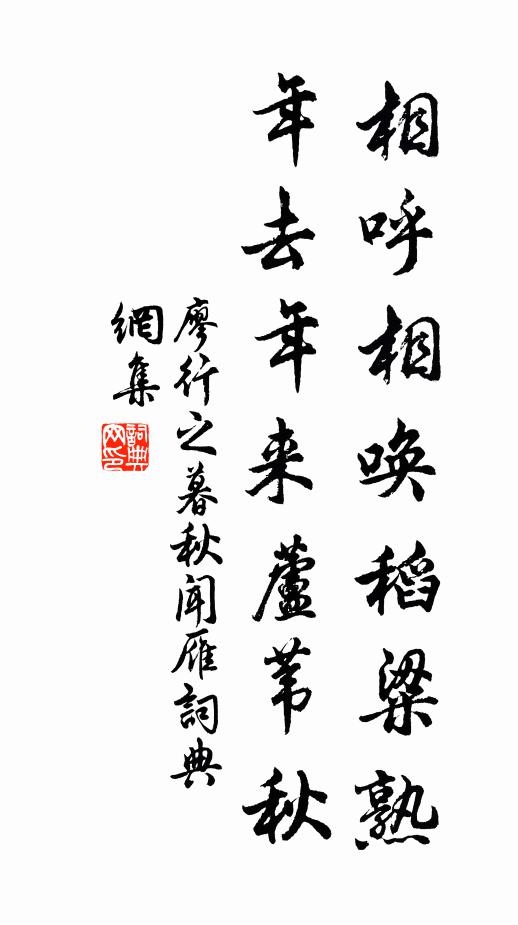 相呼相唤稻粱熟
年去年来蘆苇秋
廖行之暮秋闻雁詞典
網集
詞典
网印